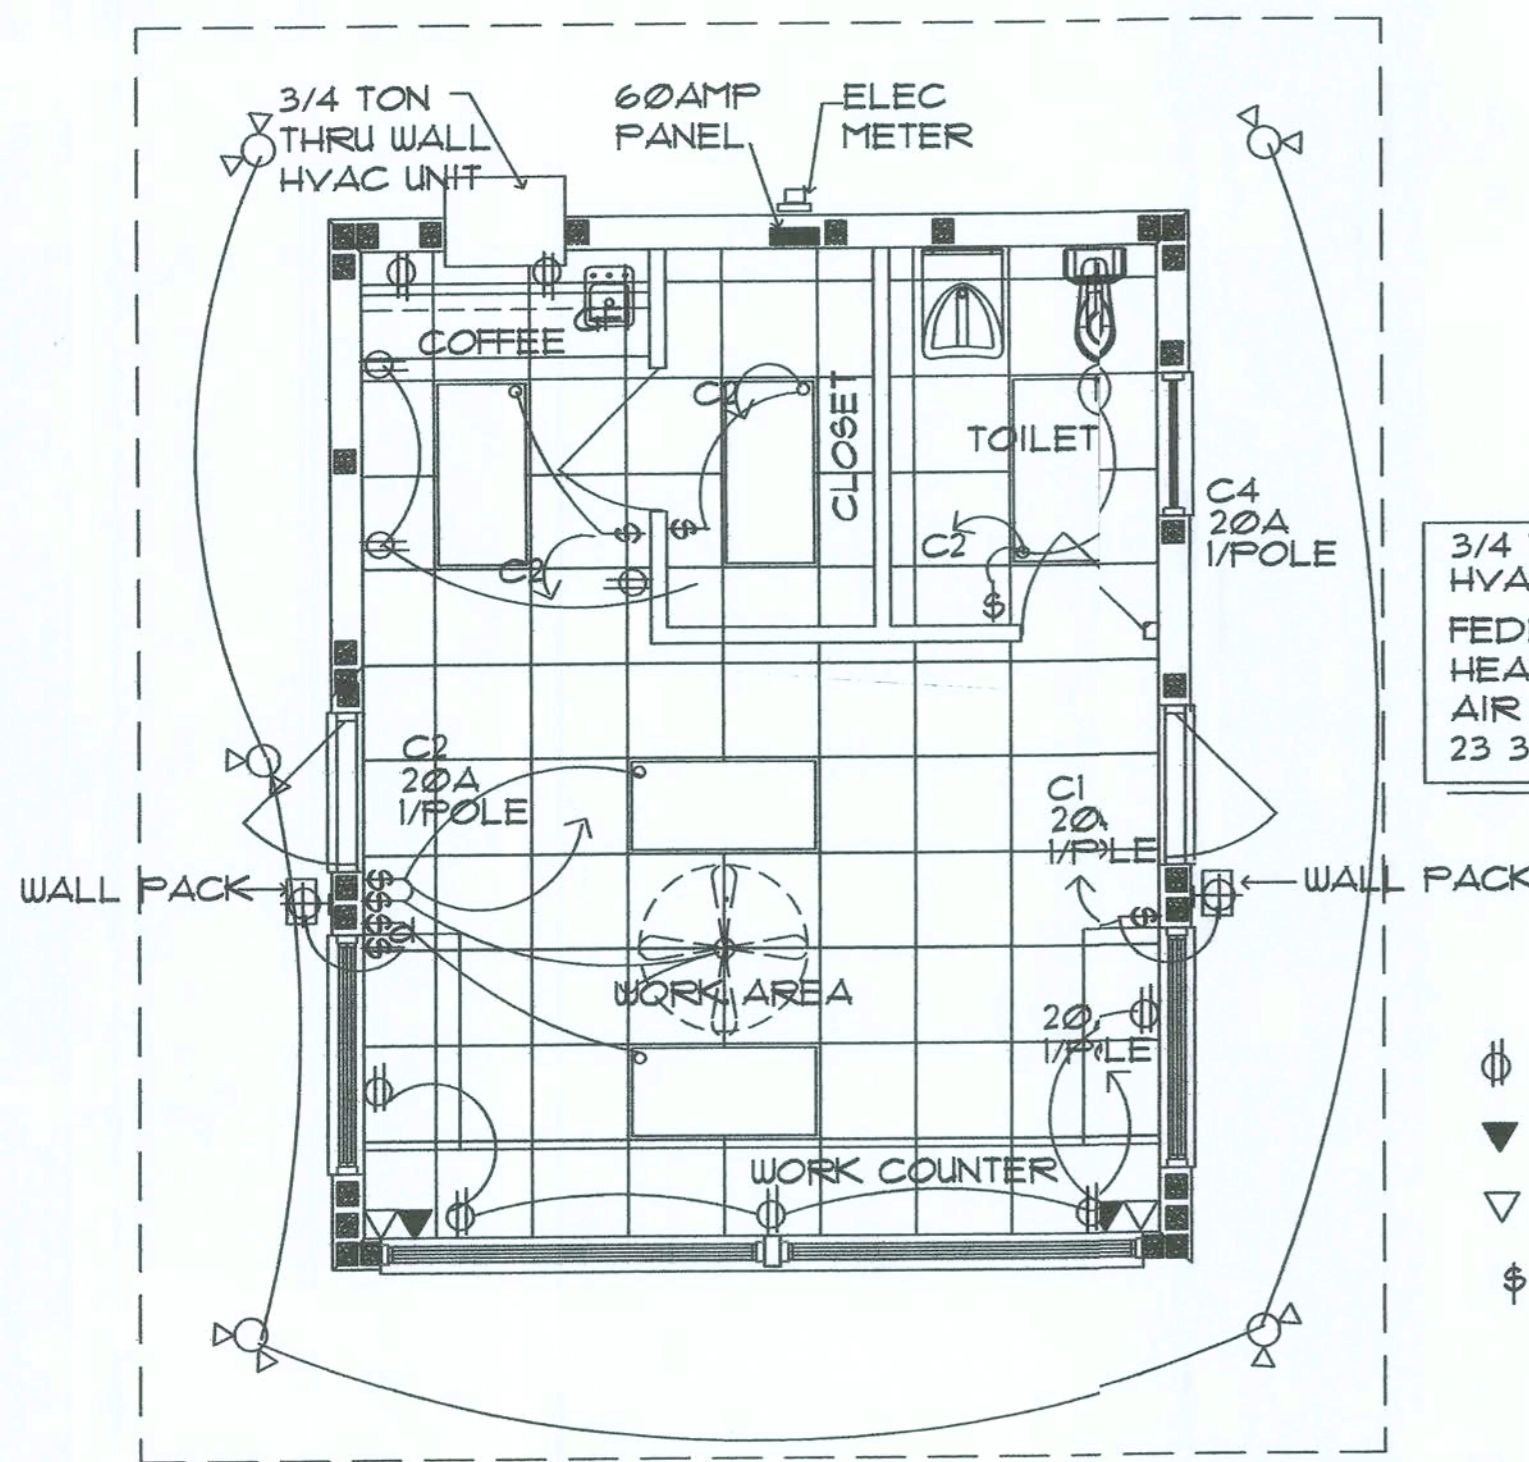 3/4 TON
THRU WALL
HVAC UNIT
60AMP
PANEL
ELEC
METER
COFFEE
C2
CLOSET
TOILET
C2
C2
C4
20A
1/POLE
3/4
HVA
FED
HEA
AIR
23 3
C2
20A
1/POLE
C1
20
1/P LE
WALL PACK
WALL PACK
$
$
$
$
$
$
$
$
WORK AREA
20
1/P LE
WORK COUNTER
$